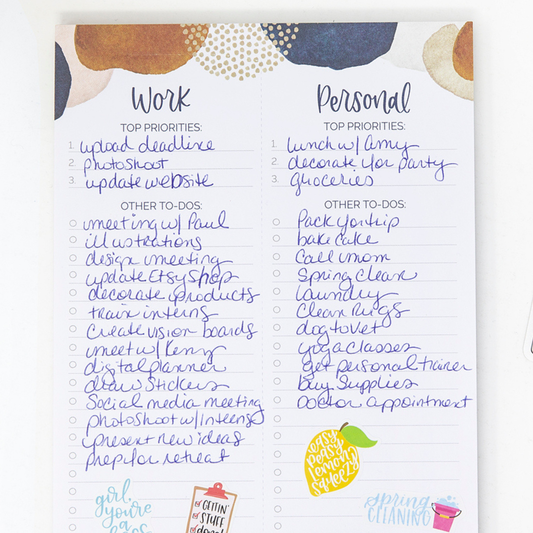 Work
TOP PRIORITIES:
1. upload deadline
2. photoshoot
3. update website
OTHER TO-DOS:
meeting w/ Paul
illustrations
design meeting
update Etsy Shop
decorate products
train interns
Create vision boards
meet w/ Kenny
digital planner
draw Stickers
Social media meeting
photoshoot w/ interns
present new ideas
prep for retreat
girl,
you're
a
GETTIN'
STUFF
done!
Personal
TOP PRIORITIES:
1. lunch w/ Amy
2. decorate for party
3. groceries
OTHER TO-DOS:
Pack for trip
bake cake
Call mom
Spring Clean
laundry
Clean Rugs
dog to vet
yoga classes
get personal trainer
buy Supplies
Doctor appointment
EASY
PEASY
LEMON
SQUEEZY
spring
CLEANING